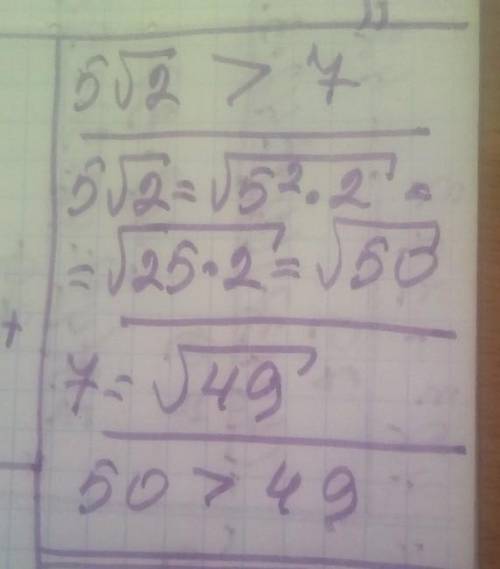 5√2 > 7
5√2 = √5²·2 =
= √25·2 = √50
7 = √49
50 > 49